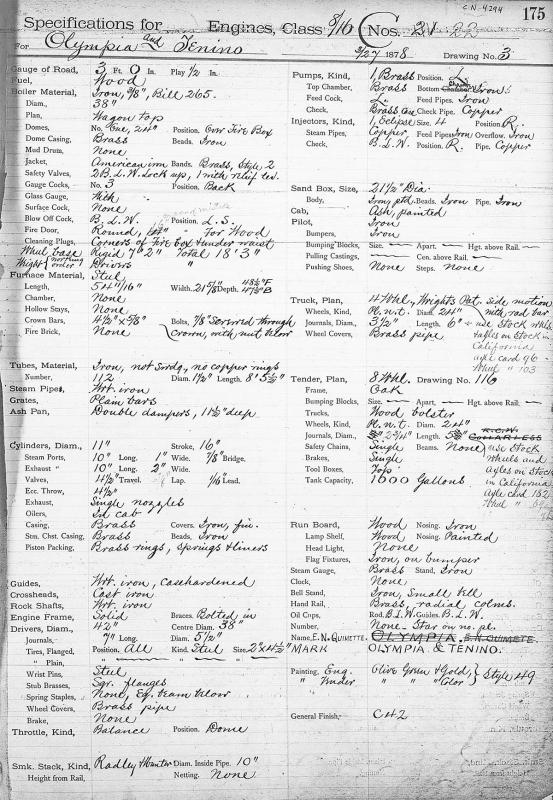 C.N. 4294
175
Specifications for Engines, Class 8/16 C Nos. 21
For Olympia and Tenino 3/27 1878 Drawing No. 3
Gauge of Road, 3 Ft. 0 In. Play 1/2 In.
Fuel, Wood
Boiler Material, Iron, 3/8", Bill 265.
Diam., 38"
Plan, Wagon top
Domes, No. One, 24" Position. Over Fire Box
Dome Casing, Brass Beads. Iron
Mud Drum, None
Jacket, American iron Bands. Brass, Style 2
Safety Valves, 2 B.L.W. Lock up, 1 with relief lev.
Gauge Cocks, No. 3 Position, Back
Glass Gauge, With
Surface Cock, None
Blow Off Cock, B.L.W. Position. L.S.
Fire Door, Round, For Wood
Cleaning Plugs, Corners of Fire box & under waist
Wheel base Rigid 7' 2" Total 18' 3"
Weight working order Drivers "
Furnace Material, Steel
Length, 54 11/16" Width. 21 5/8" Depth. 48 1/2" F 47 1/2" B
Chamber, None
Hollow Stays, None
Crown Bars, 4 1/2" x 5/8" Bolts, 7/8" Screwed through
Fire Brick, None crown, with nut below
Tubes, Material, Iron, not swdg, no copper rings
Number, 112 Diam. 1 1/2" Length, 8' 5 1/2"
Steam Pipes, Wrt. iron
Grates, Plain bars
Ash Pan, Double dampers, 11 1/2" deep
Cylinders, Diam., 11" Stroke, 16"
Steam Ports, 10" Long. 1" Wide. 7/8" Bridge.
Exhaust " 10" Long. 2" Wide.
Valves, 4 1/2" Travel. Lap. 1/16" Lead.
Ecc. Throw, 4 1/2"
Exhaust, Single nozzles
Oilers, In cab
Casing, Brass Covers. Iron, fin.
Stm. Chst. Casing, Brass Beads, Iron
Piston Packing, Brass rings, springs & liners
Guides, Wrt. iron, casehardened
Crossheads, Cast iron
Rock Shafts, Wrt. iron
Engine Frame, Solid Braces. Bolted in
Drivers, Diam., 42" Centre Diam. 38"
Journals, 7" Long Diam. 5 1/2"
Tires, Flanged, Position. All Kind. Steel Size. 2" x 4 1/2"
" Plain,
Wrist Pins, Steel
Stub Brasses, Sqr. flanges
Spring Staples, None, Eq. beam below
Wheel Covers, Brass pipe
Brake, None
Throttle, Kind, Balance Position. Dome
Smk. Stack, Kind, Radley & Hunter Diam. Inside Pipe. 10"
Height from Rail, Netting. None
Pumps, Kind, 1, Brass Position. L.
Top Chamber, Brass Bottom Chamber Iron
Feed Cock, L. Feed Pipes. Iron
Check, Brass Check Pipe. Copper
Injectors, Kind, 1, Eclipse Size. 4 Position. R.
Steam Pipes, Copper, Feed Pipes Iron Overflow. Iron
Check, B.L.W. Position. R. Pipe. Copper
Sand Box, Size, 21 1/2" Dia
Body, Iron, ptd. Beads. Iron Pipe. Iron
Cab, Ash, painted
Pilot, Iron
Bumpers, Iron
Bumping Blocks, Size. — Apart. — Hgt. above Rail. —
Pulling Castings, — Cen. above Rail. —
Pushing Shoes, None Steps. None
Truck, Plan, 4 Whl., Wrights Pat. side motion
Wheels, Kind, Pl. n. t. Diam. 24" with rad bar
Journals, Diam., 3 1/2" Length. 6" use Stock whls
Wheel Covers, Brass pipe & axles on Stock in
California
axle card 96
Wheel " 103
Tender, Plan, 8 Whl. Drawing No. 116
Frame, Oak
Bumping Blocks, Size. — Apart. — Hgt. above Rail. —
Trucks, Wood bolster
Wheels, Kind, Pl. n. t. Diam. 24"
Journals, Diam., 2 3/4" Length. COLLARLESS
Safety Chains, Single Beams. None use Stock
Brakes, Single wheels and
Tool Boxes, Top axles on Stock
Tank Capacity, 1000 Gallons in California
axle card 152
Run Board, Wood Nosing. Iron
Lamp Shelf, Wood Nosing. Painted
Head Light, None
Flag Fixtures, Iron, on bumper
Steam Gauge, Brass Stand, Iron
Clock, None
Bell Stand, Iron, small bell
Hand Rail, Brass, radial colms.
Oil Cups, Rod. B.L.W. Guides. B.L.W.
Number, None - Star on no. pl.
Name, E.N. QUIMETTE. OLYMPIA, E.N. QUIMETE.
MARK OLYMPIA. & TENINO.
Painting, Eng. Olive Green & Gold, Style 49
" Tender " " Color
General Finish, C42